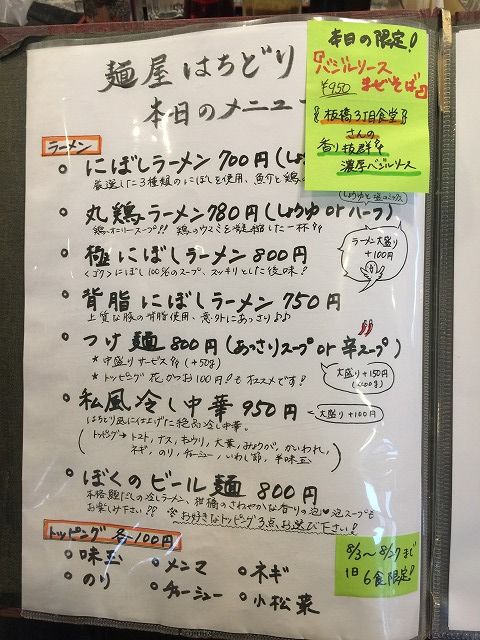 麺屋はちどり
本日のメニュー
本日の限定!
『バジルソース
まぜそば』
¥950
板橋3丁目食堂
さんの
香り抜群
濃厚バジルソース
ラーメン
にぼしラーメン 700円(しょ
厳選した3種類のにぼしを使用、魚介と鶏
丸鶏ラーメン 780円(しょうゆ or ハーフ)
しょうゆと塩の
鶏オンリースープ!! 鶏のウマミを凝縮した一杯
ラーメン大盛り
+100円
極にぼしラーメン 800円
<ゴク>にぼし100%のスープ、スッキリとした後味!
背脂にぼしラーメン 750円
上質な豚の背脂使用、意外にあっさり♪♪
つけ麺 800円(あっさりスープ or 辛スープ)
* 中盛りサービス (+50g)
* トッピング花かつお100円!もオススメです!
大盛り+150円
私風冷し中華 950円
大盛り+100円
はちどり風に仕上げた絶品冷し中華。
(トッピング→トマト、ナス、キウリ、大葉、みょうが、かいわれ、
ネギ、のり、チャーシュー、いわし節、半味玉)
ぼくのビール麺 800円
本格鶏だしの冷しラーメン、柑橘のさわやかな香りの泡♥泡スープも
お楽しみ下さい?? ※お好きなトッピング3点お選び下さい!
トッピング 各-100円
味玉 メンマ ネギ
のり チャーシュー 小松菜
8/3~8/27まで
1日
6食限定!